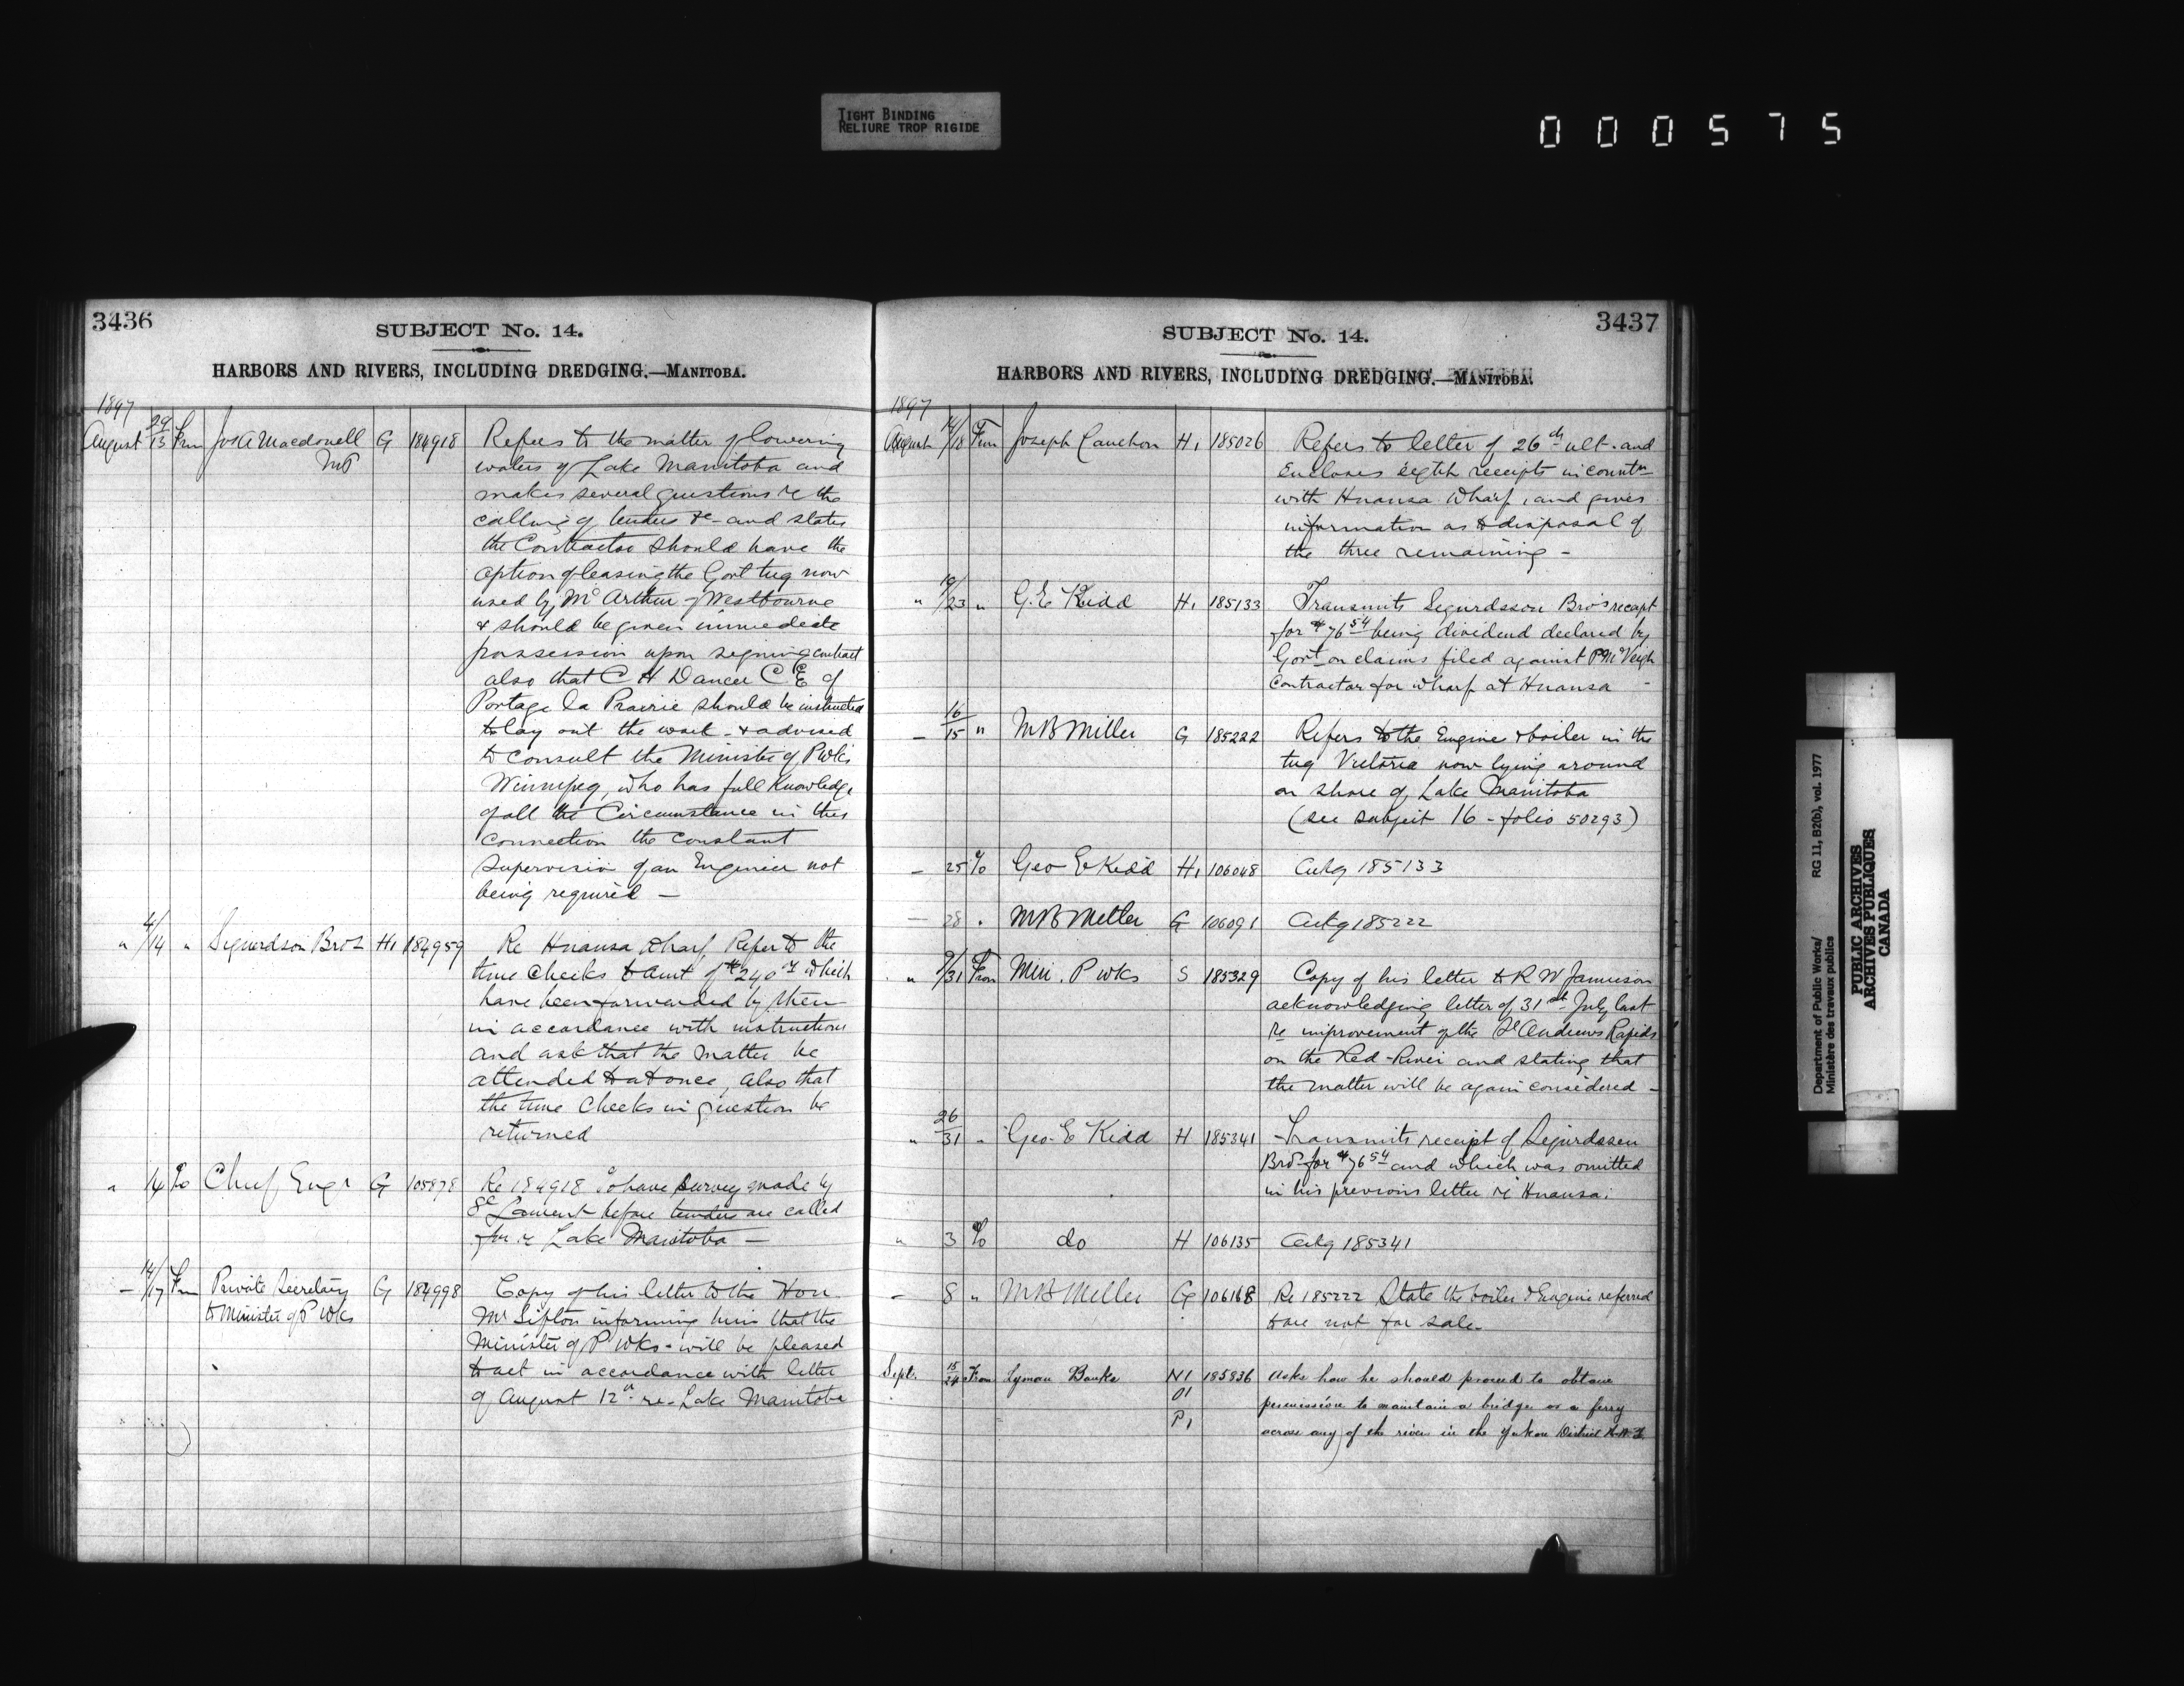 TIGHT BINDING
RELIURE TROP RIGIDE
000575
3436
SUBJECT No. 14.
HARBORS AND RIVERS, INCLUDING DREDGING.—MANITOBA.
1897
August 29/13 From Jos A Macdonell G 184918 Refers to the matter of lowering
MP waters of Lake Manitoba and
makes several questions re the
calling of tenders &c - and states
the Contractor should have the
option of leasing the Govt tug now
used by McArthur of Westbourne
& should be given immediate
possession upon signing contract
also that C H Dancer C E of
Portage la Prairie should be instructed
to lay out the work - & advised
to consult the Minister of P Wks
Winnipeg, who has full Knowledge
of all the Circumstance in this
connection the constant
supervision of an Engineer not
being required —
" 4/14 " Sigurdson Bros H1 184959 Re Hnausa Wharf Refer to the
time checks to Amt of $240 which
have been forwarded by them
in accordance with instructions
and ask that the matter be
attended to at once, also that
the time checks in question be
returned
" 14 To Chief Engr G 105878 Re 184918 To have survey made by
St Laurent before tenders are called
for re Lake Manitoba —
— 14/17 From Private Secretary G 184998 Copy of his letter to the Hon
to Minister of P Wks Mr Sifton informing him that the
Minister of P Wks - will be pleased
to act in accordance with letter
of August 12th re - Lake Manitoba
3437
SUBJECT No. 14.
HARBORS AND RIVERS, INCLUDING DREDGING.—MANITOBA.
1897
August 14/18 From Joseph Cauchon H1 185026 Refers to letter of 26th ult. and
Encloses eight receipts in connctn
with Hnausa Wharf, and gives
information as to disposal of
the three remaining -
" 19/23 " G. E Kidd H1 185133 Transmits Sigurdsson Bro's receipt
for $76 54 being dividend declared by
Govt on claims filed against P McVeigh
Contractor for wharf at Hnausa -
— 16/15 " M B Miller G 185222 Refers to the Engine & boiler in the
tug Victoria now lying around
on shore of Lake Manitoba
(see subject 16 - folio 50293)
— 25 To Geo E Kidd H1 106048 Ackg 185133
— 28 " M B Miller G 106091 Ackg 185222
" /31 From Min. P Wks S 185329 Copy of his letter to R W Jamieson
acknowledging letter of 31st July last
re improvement of the St Andrews Rapids
on the Red-River and stating that
the matter will be again considered -
" 26/31 " Geo. E Kidd H 185341 Transmits receipt of Sigurdssen
Bros for $76 54 and which was omitted
in his previous letter re Hnausa.
" 3 To do H 106135 Ackg 185341
— 8 " M B Miller G 106168 Re 185222 State the boiler & Engine referred
to are not for sale -
Sept. 15/24 From Lyman Banks N1 185836 Asks how he should proceed to obtain
O1 permission to maintain a bridge or a ferry
P1 across any of the rivers in the Yukon District N.W.T.
Department of Public Works/
Ministère des travaux publics
RG 11, B2(b), vol. 1977
PUBLIC ARCHIVES
ARCHIVES PUBLIQUES
CANADA